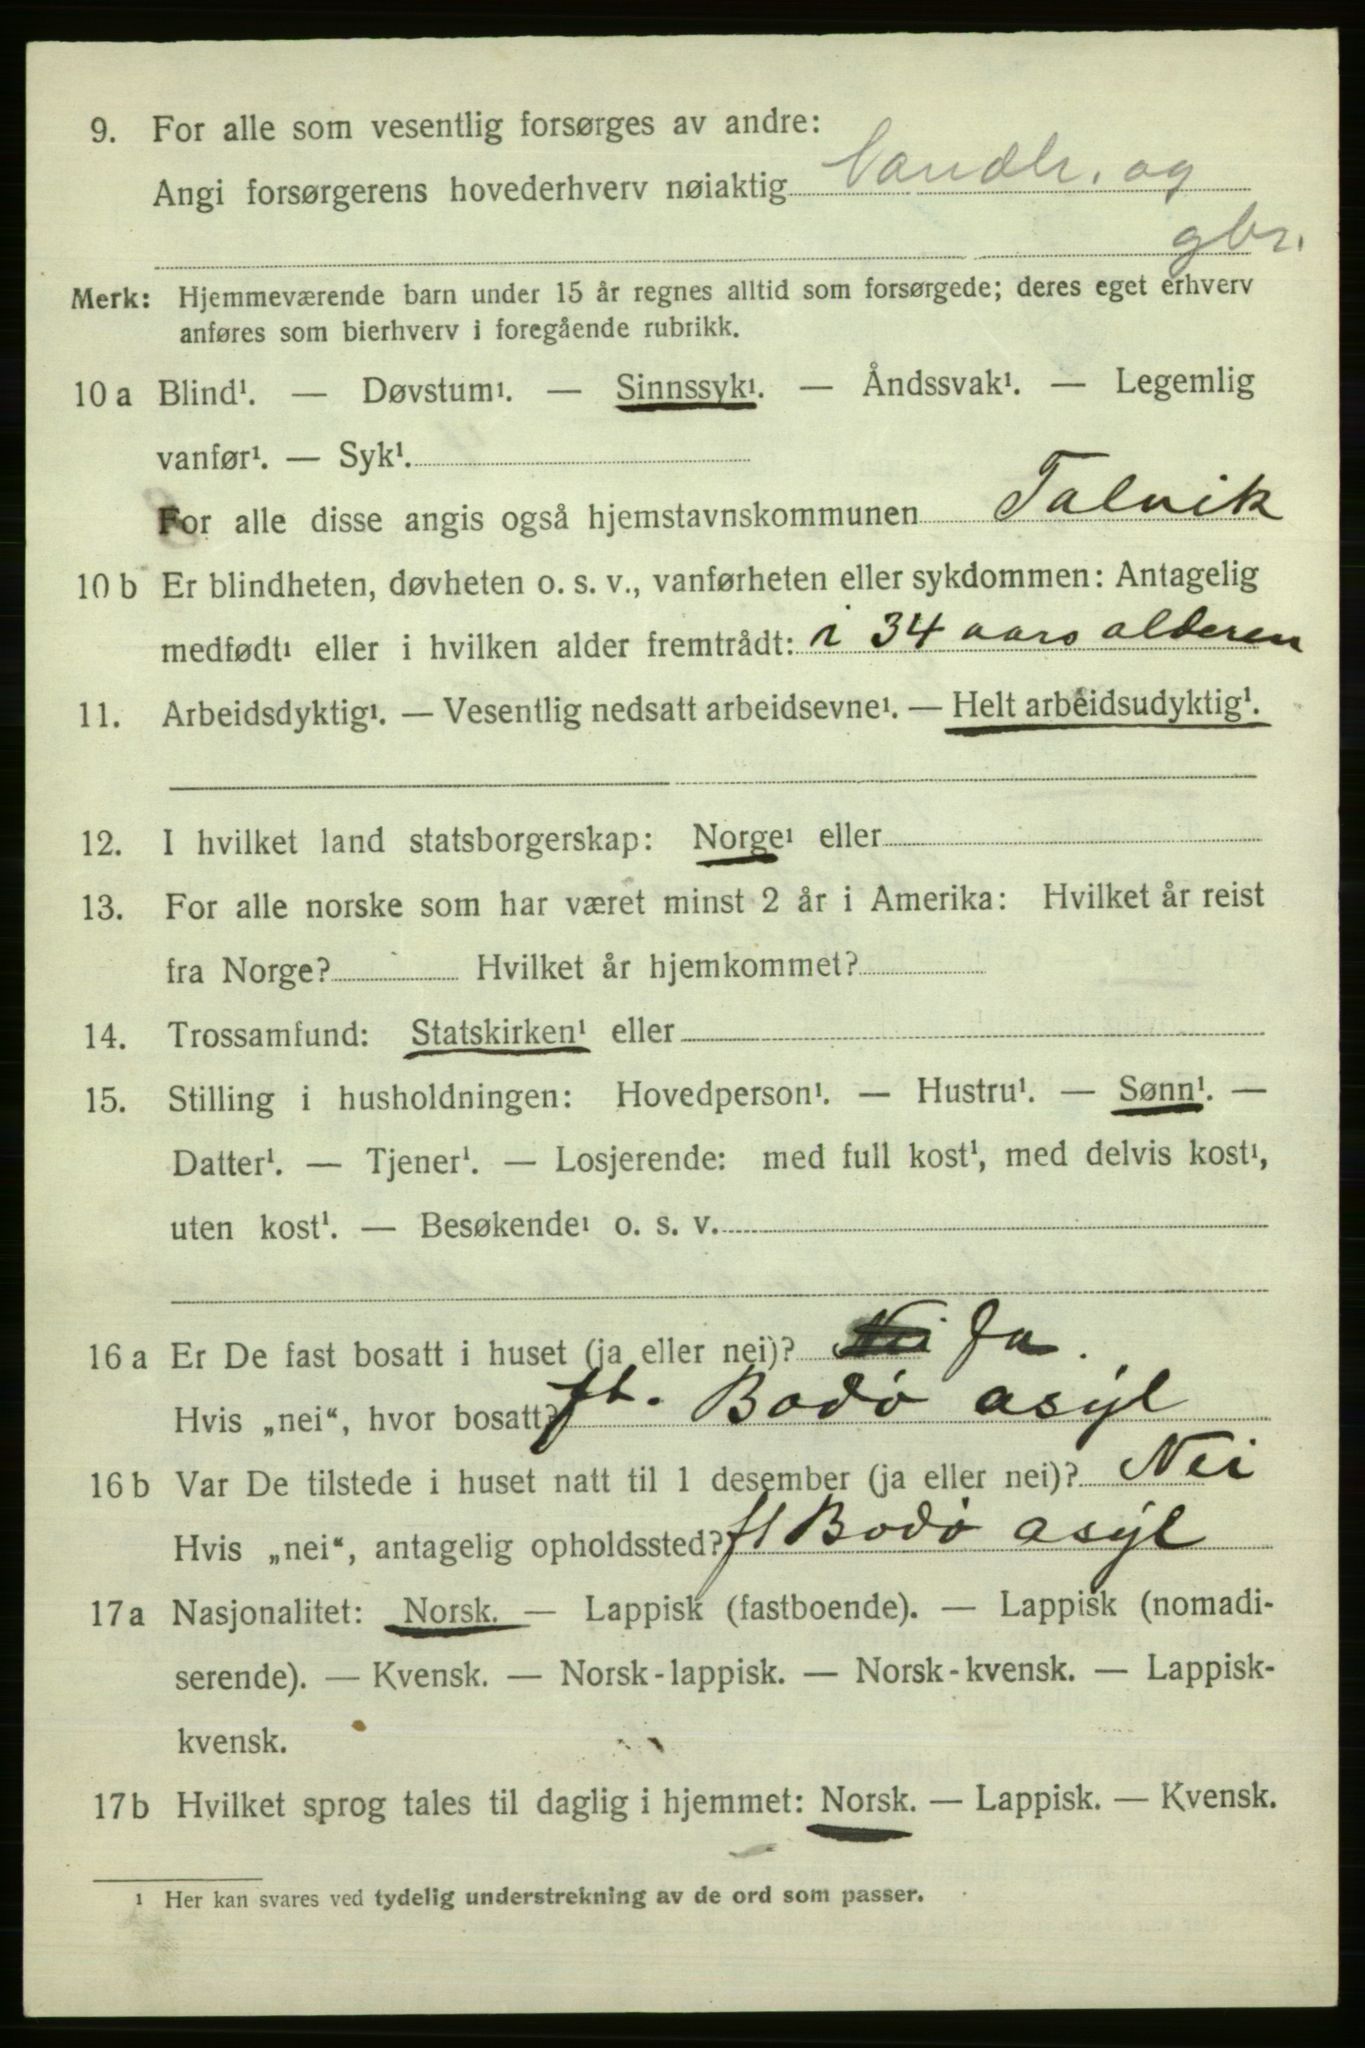 9. For alle som vesentlig forsørges av andre:
Angi forsørgerens hovederhverv nøiaktig Candh. og
gbr.
Merk: Hjemmeværende barn under 15 år regnes alltid som forsørgede; deres eget erhverv
anføres som bierhverv i foregående rubrikk.
10 a Blind¹. — Døvstum¹. — Sinnssyk¹. — Åndssvak¹. — Legemlig
vanfør¹. — Syk¹.
For alle disse angis også hjemstavnskommunen Talvik
10 b Er blindheten, døvheten o. s. v., vanførheten eller sykdommen: Antagelig
medfødt¹ eller i hvilken alder fremtrådt: i 34 aars alderen
11. Arbeidsdyktig¹. — Vesentlig nedsatt arbeidsevne¹. — Helt arbeidsudyktig¹.
12. I hvilket land statsborgerskap: Norge¹ eller
13. For alle norske som har været minst 2 år i Amerika: Hvilket år reist
fra Norge? Hvilket år hjemkommet?
14. Trossamfund: Statskirken¹ eller
15. Stilling i husholdningen: Hovedperson¹. — Hustru¹. — Sønn¹. —
Datter¹. — Tjener¹. — Losjerende: med full kost¹, med delvis kost¹,
uten kost¹. — Besøkende¹ o. s. v.
16 a Er De fast bosatt i huset (ja eller nei)? Nei Ja.
Hvis „nei“, hvor bosatt? ft. Bodø asyl
16 b Var De tilstede i huset natt til 1 desember (ja eller nei)? Nei
Hvis „nei“, antagelig opholdssted? ft Bodø asyl
17 a Nasjonalitet: Norsk. — Lappisk (fastboende). — Lappisk (nomadi-
serende). — Kvensk. — Norsk-lappisk. — Norsk-kvensk. — Lappisk-
kvensk.
17 b Hvilket sprog tales til daglig i hjemmet: Norsk. — Lappisk. — Kvensk.
¹ Her kan svares ved tydelig understrekning av de ord som passer.